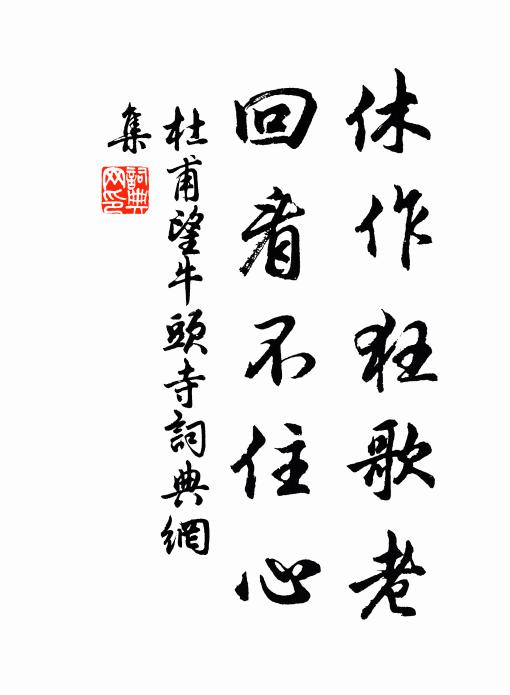 休作狂歌老
回看不住心
杜甫望牛頭寺詞典網
集
詞典
网印